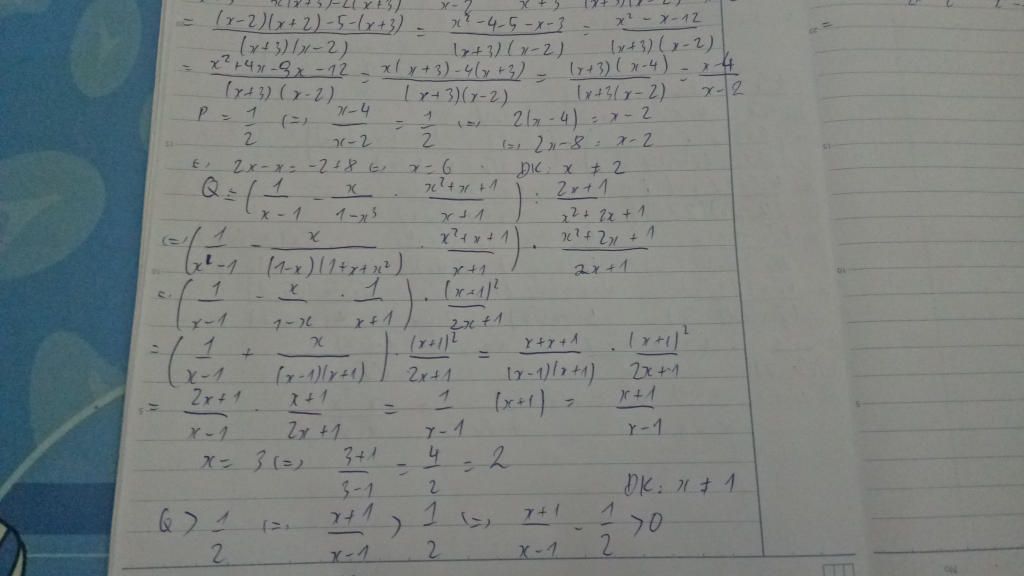 = ((x-2)(x+2)-5-(x+3))/((x+3)(x-2)) = (x²-4-5-x-3)/((x+3)(x-2)) = (x²-x-12)/((x+3)(x-2))
= (x²+4x-3x-12)/((x+3)(x-2)) = (x(x+3)-4(x+3))/((x+3)(x-2)) = ((x+3)(x-4))/((x+3(x-2)) = (x-4)/(x-2)
P = 1/2 (=) (x-4)/(x-2) = 1/2 (=) 2(x-4) = x-2
(=) 2x-8 = x-2
(=) 2x-x = -2+8 (=) x=6 DK: x ≠ 2
Q = (1/(x-1) - x/(1-x³) · (x²+x+1)/(x+1)) : (2x+1)/(x²+2x+1)
(=) (1/(x-1) - x/((1-x)(1+x+x²)) · (x²+x+1)/(x+1)) · (x²+2x+1)/(2x+1)
= (1/(x-1) - x/(1-x) · 1/(x+1)) · (x+1)²/(2x+1)
= (1/(x-1) + x/((x-1)(x+1))) · (x+1)²/(2x+1) = (x+x+1)/((x-1)(x+1)) · (x+1)²/(2x+1)
= (2x+1)/(x-1) · (x+1)/(2x+1) = 1/(x-1) (x+1) = (x+1)/(x-1)
x = 3 (=) (3+1)/(3-1) = 4/2 = 2
DK: x ≠ 1
Q > 1/2 (=) (x+1)/(x-1) > 1/2 (=) (x+1)/(x-1) - 1/2 > 0